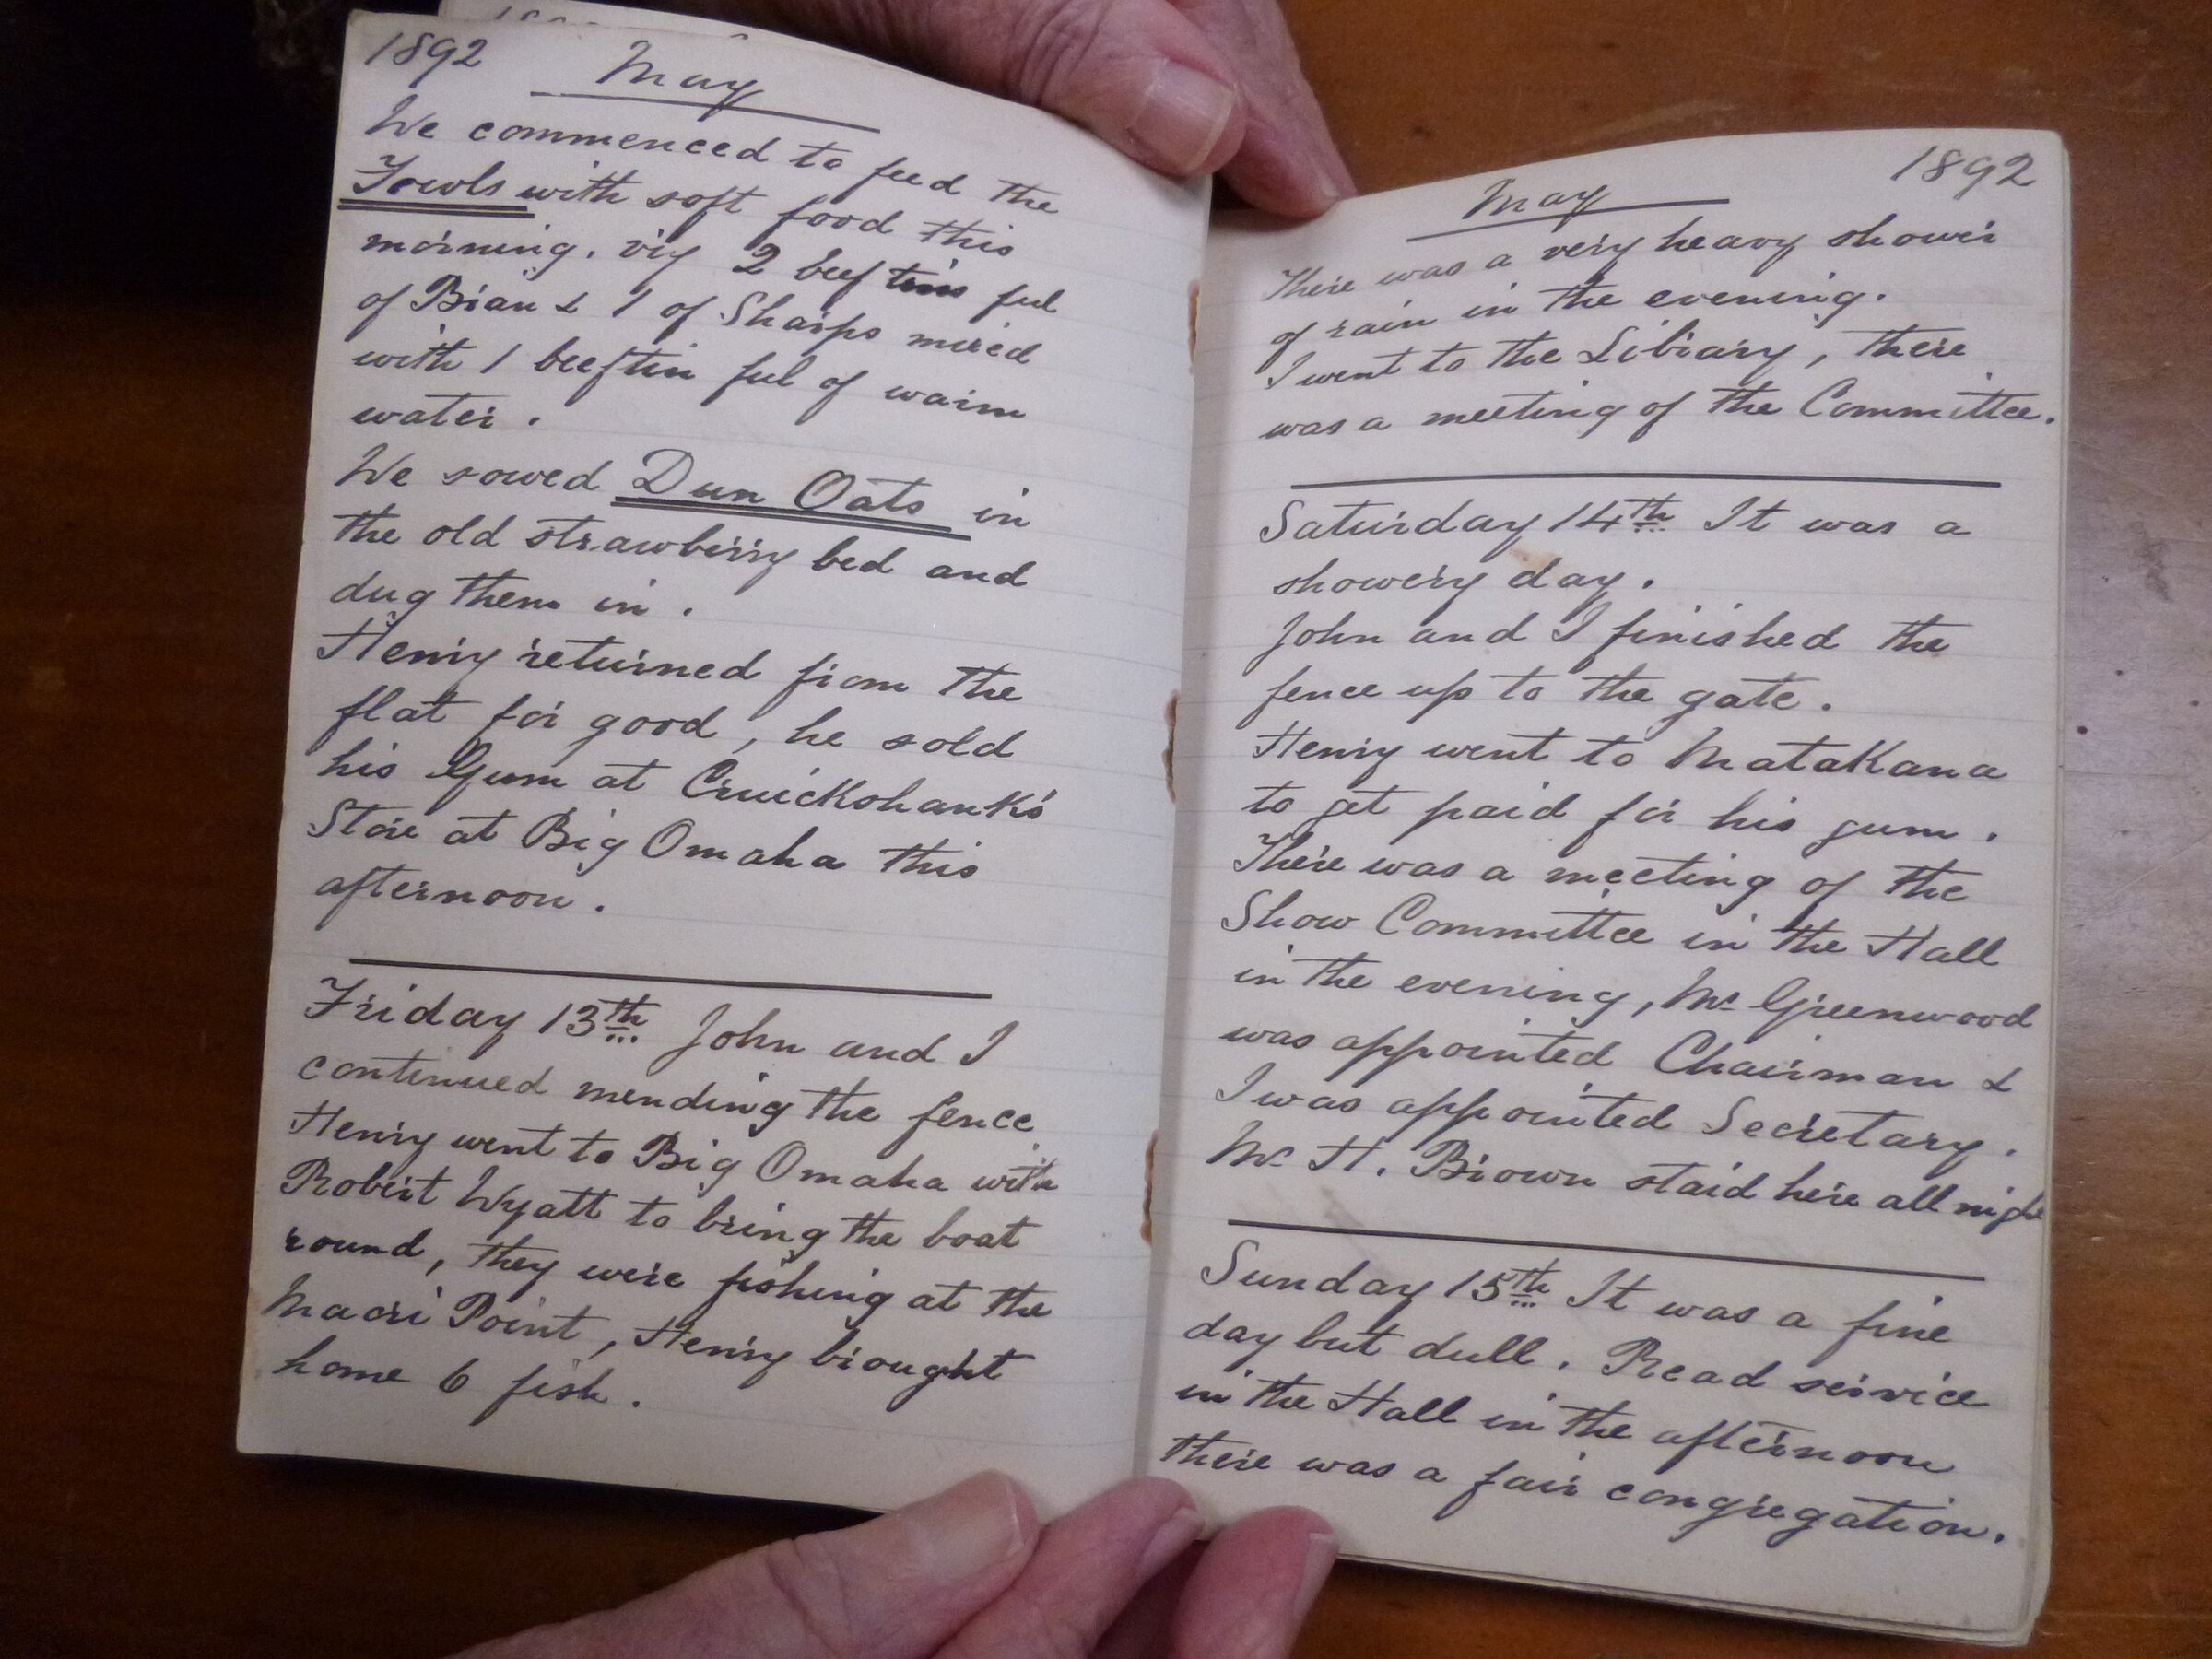 1892 May
We commenced to feed the
Fowls with soft food this
morning. viz 2 beef tins ful
of Bran & 1 of Sharps mixed
with 1 beeftin ful of warm
water.
We sowed Dun Oats in
the old strawberry bed and
dug them in.
Henry returned from the
flat for good, he sold
his Gum at Cruickshank's
Store at Big Omaha this
afternoon.
Friday 13th John and I
continued mending the fence
Henry went to Big Omaha with
Robert Wyatt to bring the boat
round, they were fishing at the
Maori Point, Henry brought
home 6 fish.
May 1892
There was a very heavy shower
of rain in the evening.
I went to the Library, there
was a meeting of the Committee.
Saturday 14th It was a
showery day.
John and I finished the
fence up to the gate.
Henry went to Matakana
to get paid for his gum.
There was a meeting of the
Show Committee in the Hall
in the evening, Mr Greenwood
was appointed Chairman &
I was appointed Secretary.
Mr H. Brown staid here all night
Sunday 15th It was a fine
day but dull. Read service
in the Hall in the afternoon
there was a fair congregation.